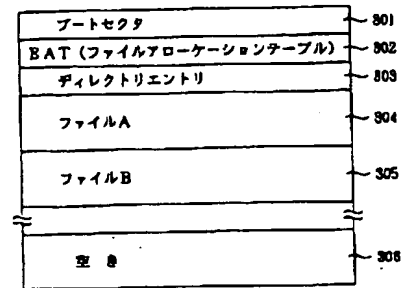 ブートセクタ 301
BAT(ファイルアロケーションテーブル) 302
ディレクトリエントリ 303
ファイルA 304
ファイルB 305
空き 306